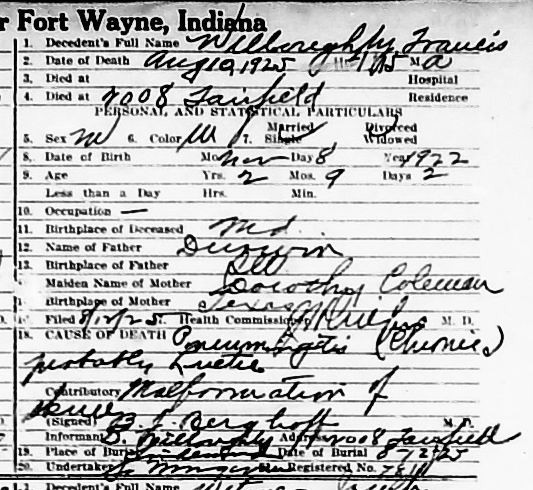 r Fort Wayne, Indiana
1. Decedent's Full Name Willoughby, Francis
2. Date of Death Aug 10, 1925 M a
3. Died at Hospital
4. Died at 2008 Fairfield Residence
PERSONAL AND STATISTICAL PARTICULARS
5. Sex M 6. Color W 7. Married Single Divorced Widowed
8. Date of Birth Mo. Nov Day 8 Year 1922
9. Age Yrs. 2 Mos. 9 Days 2
Less than a Day Hrs. Min.
10. Occupation —
11. Birthplace of Deceased Md.
12. Name of Father
13. Birthplace of Father Ill
Maiden Name of Mother Dorothy Coleman
Birthplace of Mother Texas
Filed 8/12/25. Health Commissioner M. D.
18. CAUSE OF DEATH (Chronic)
probably Luetic
Contributory Malformation of
(Signed) B. P. Berghoff M. D.
Informant D. Willoughby Address 2008 Fairfield
19. Place of Burial Lindenwood Date of Burial 8-12-25
20. Undertaker Registered No.
1. Decedent's Full Name